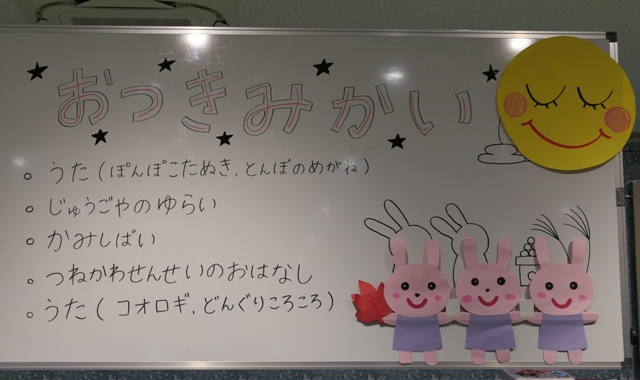 おつきみかい
○ うた(ぽんぽこたぬき、とんぼのめがね)
○ じゅうごやのゆらい
○ かみしばい
○ つねかわせんせいのおはなし
○ うた(コオロギ、どんぐりころころ)